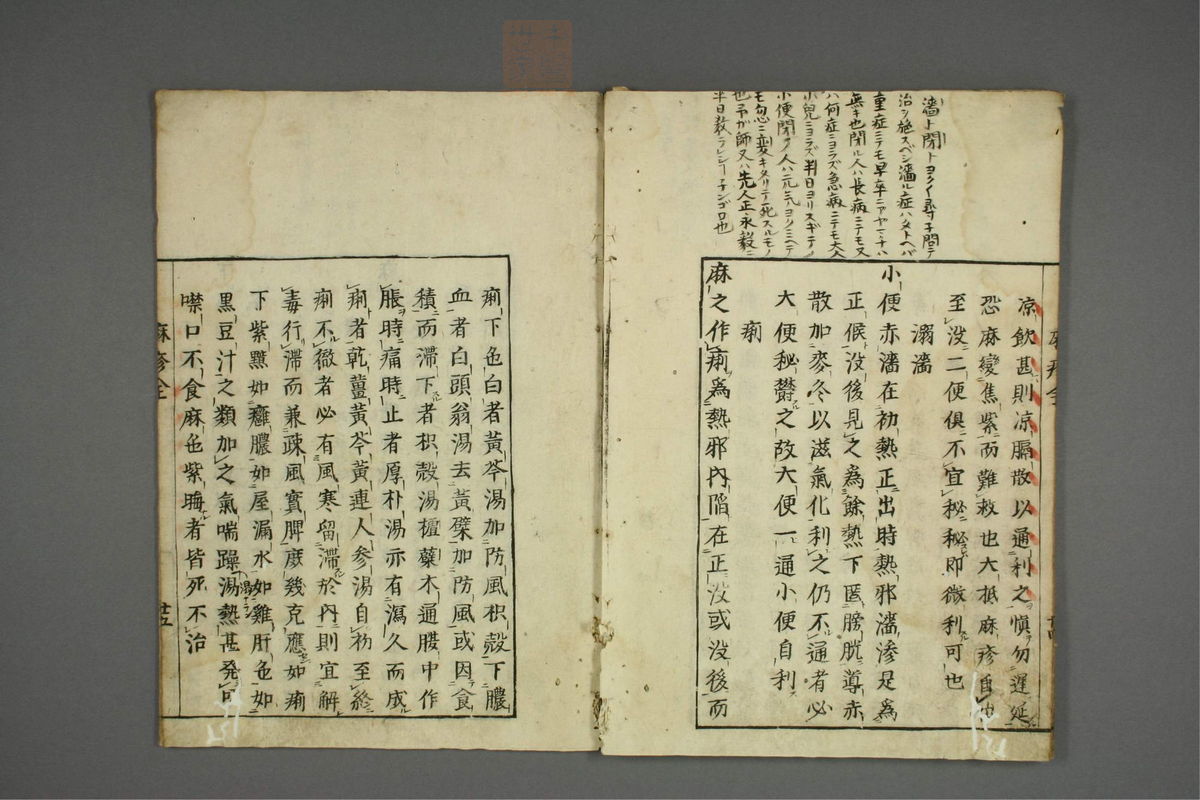 濇ト閉トヨク〱尋子問テ
治ヲ施スベシ濇ル症ハタトヘバ
重症ニテモ早卒ニアヤマチハ
無キ也閉ル人ハ長病ニテモ又
ハ何症ニヨラズ急病ニテモ大人
小兒ニヨラズ半日ヨリスギテノ
小便閉クノ人ハ元氣ヨクミヘテ
モ匆忽ニ変キタリテ死スルモノ
也予ガ師又ハ先人正永毅ニ
半日教ラレシ
凉飲甚則凉膈散以通利之愼勿遲延
恐麻變焦紫而難救也大抵麻疹自出
至没二便俱不宜秘秘即微利可也
溺濇
小便赤濇在初熱正出時熱邪濇滲是爲
正候没後見之爲餘熱下匿膀胱導赤
散加麥冬以滋氣化利之仍不通者必
大便秘欝之故大便一通小便自利
痢
麻之作痢爲熱邪内陷在正没或没後而
麻疹全
痢下色白者黃芩湯加防風枳殼下膿
血者白頭翁湯去黃檗加防風或因食
積而滯下者枳殼湯檀蘗木通腹中作
脹時痛時止者厚朴湯亦有瀉久而成
痢者乾薑黃芩黃連人參湯自初至終
痢不徹者必有風寒留滯於内則宜解
毒行滯而兼疎風實脾庶幾克應如痢
下紫黑如癰膿如屋漏水如雞肝色如
黑豆汁之類加之氣喘躁湯熱甚發
噤口不食麻色紫晦者皆死不治
麻疹全
廿五